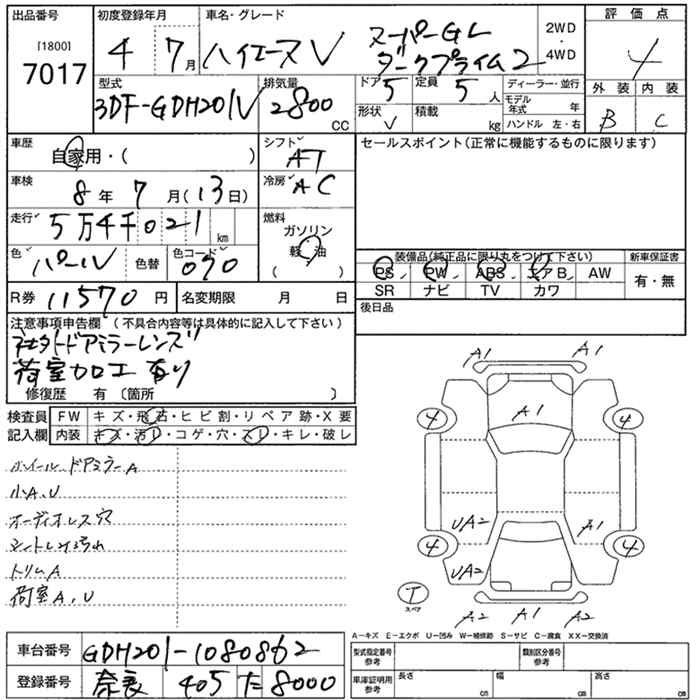 出品番号
[1800]
7017
初度登録年月
4 7月
車名・グレード
ハイエースV スーパーGL
ダークプライム2
2WD
・
4WD
評価点
4
外装 内装
B C
型式
3DF-GDH201V
排気量
2800 CC
ドア 5
定員 5人
形状 V
積載 kg
ディーラー・並行
モデル年式 年
ハンドル 左・右
車歴
自家用・( )
シフト AT
セールスポイント(正常に機能するものに限ります)
車検
8年7月(13日)
冷房 AC
走行 5万4千021km
燃料
ガソリン
軽油
( )
色 パール 色替
色コード 070
装備品(純正品に限り丸をつけて下さい)
PS PW ABS エアB AW
SR ナビ TV カワ
新車保証書
有・無
R券 11570円
名変期限 月 日
後日品
注意事項申告欄(不具合内容等は具体的に記入して下さい)
社外ドアミラーレンズ
荷室加工有り
修復歴 有 〔箇所 〕
検査員記入欄
FW キズ・飛石・ヒビ割・リペア跡・X要
内装 キズ・汚レ・コゲ・穴・スレ・キレ・破レ
ホイール ドアミラーA
小A.U
オーディオレス穴
シートレイル汚れ
トリムA
荷室A.U
A1 A1
A1
4 4
UA2 A1
4 4
UA2
T
スペア
A2 A1 A2
A-キズ E-エクボ U-凹み W-補修跡 S-サビ C-腐食 XX-交換済
車台番号 GDH201-1080862
登録番号 奈良 405 た 8000
型式指定番号 参考
類別区分番号 参考
車庫証明用 参考
長さ cm
幅 cm
高さ cm